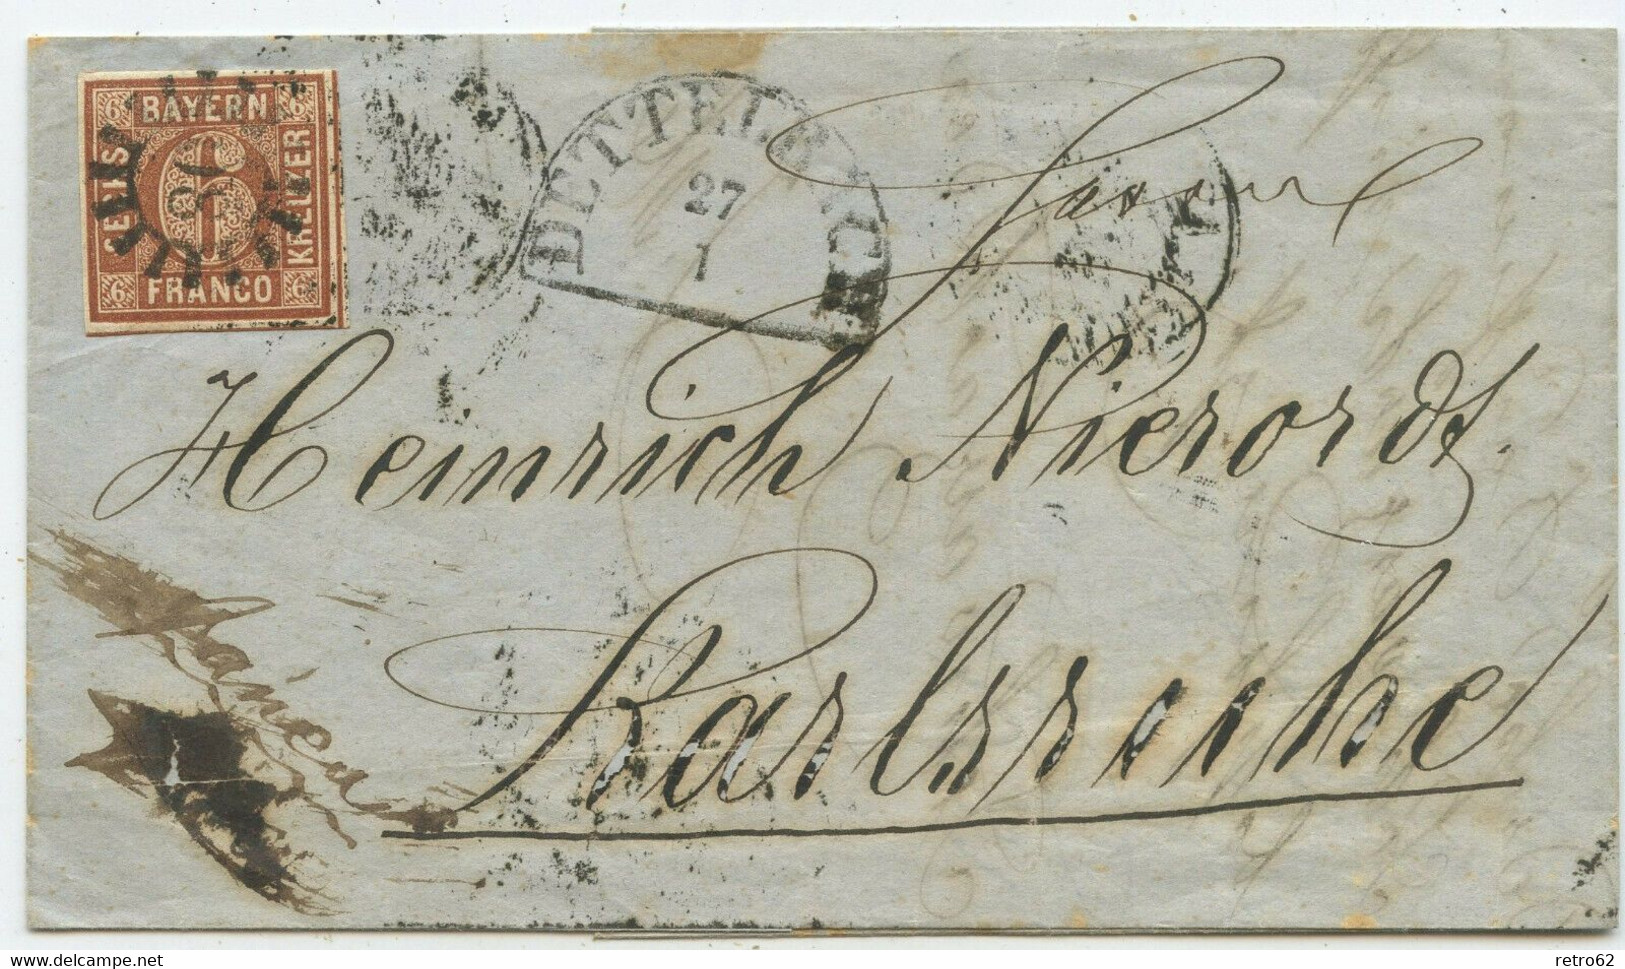 6 BAYERN 6
SECHS
6
KREUZER
6 FRANCO 6
DETTELBACH
27
1
Herrn
Heinrich Nierordt.
Karlsruhe
franco
delcampe.net
retro62